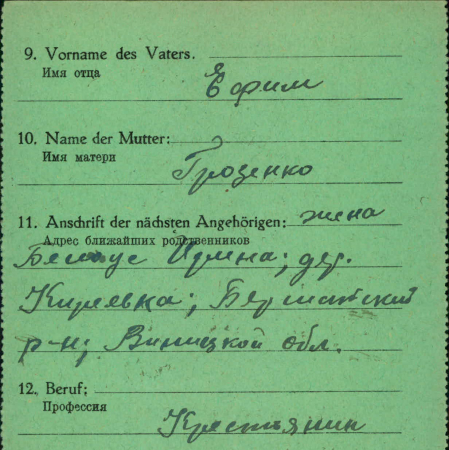 9. Vorname des Vaters.
Имя отца
Ефим
10. Name der Mutter:
Имя матери
Грозенко
11. Anschrift der nächsten Angehörigen: жена
Адрес ближайших родственников
Белоус Ирина; дер.
Киреевка; Бершатский
р-н; Виницкой обл.
12. Beruf:
Профессия
Крестьянин